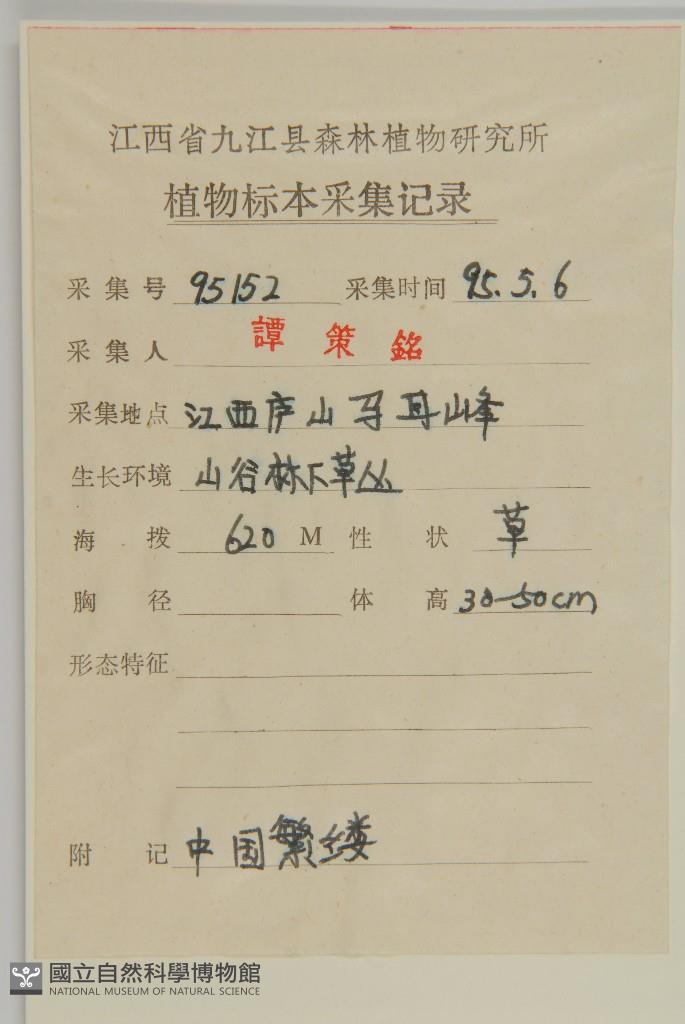 江西省九江县森林植物研究所
植物标本采集记录
采集号 95152 采集时间 95.5.6
采集人 譚策銘
采集地点 江西庐山马耳山峰
生长环境 山谷林下草丛
海拨 620 M 性状 草
胸径 体高 30-50cm
形态特征
附记 中国繁缕
國立自然科學博物館
NATIONAL MUSEUM OF NATURAL SCIENCE